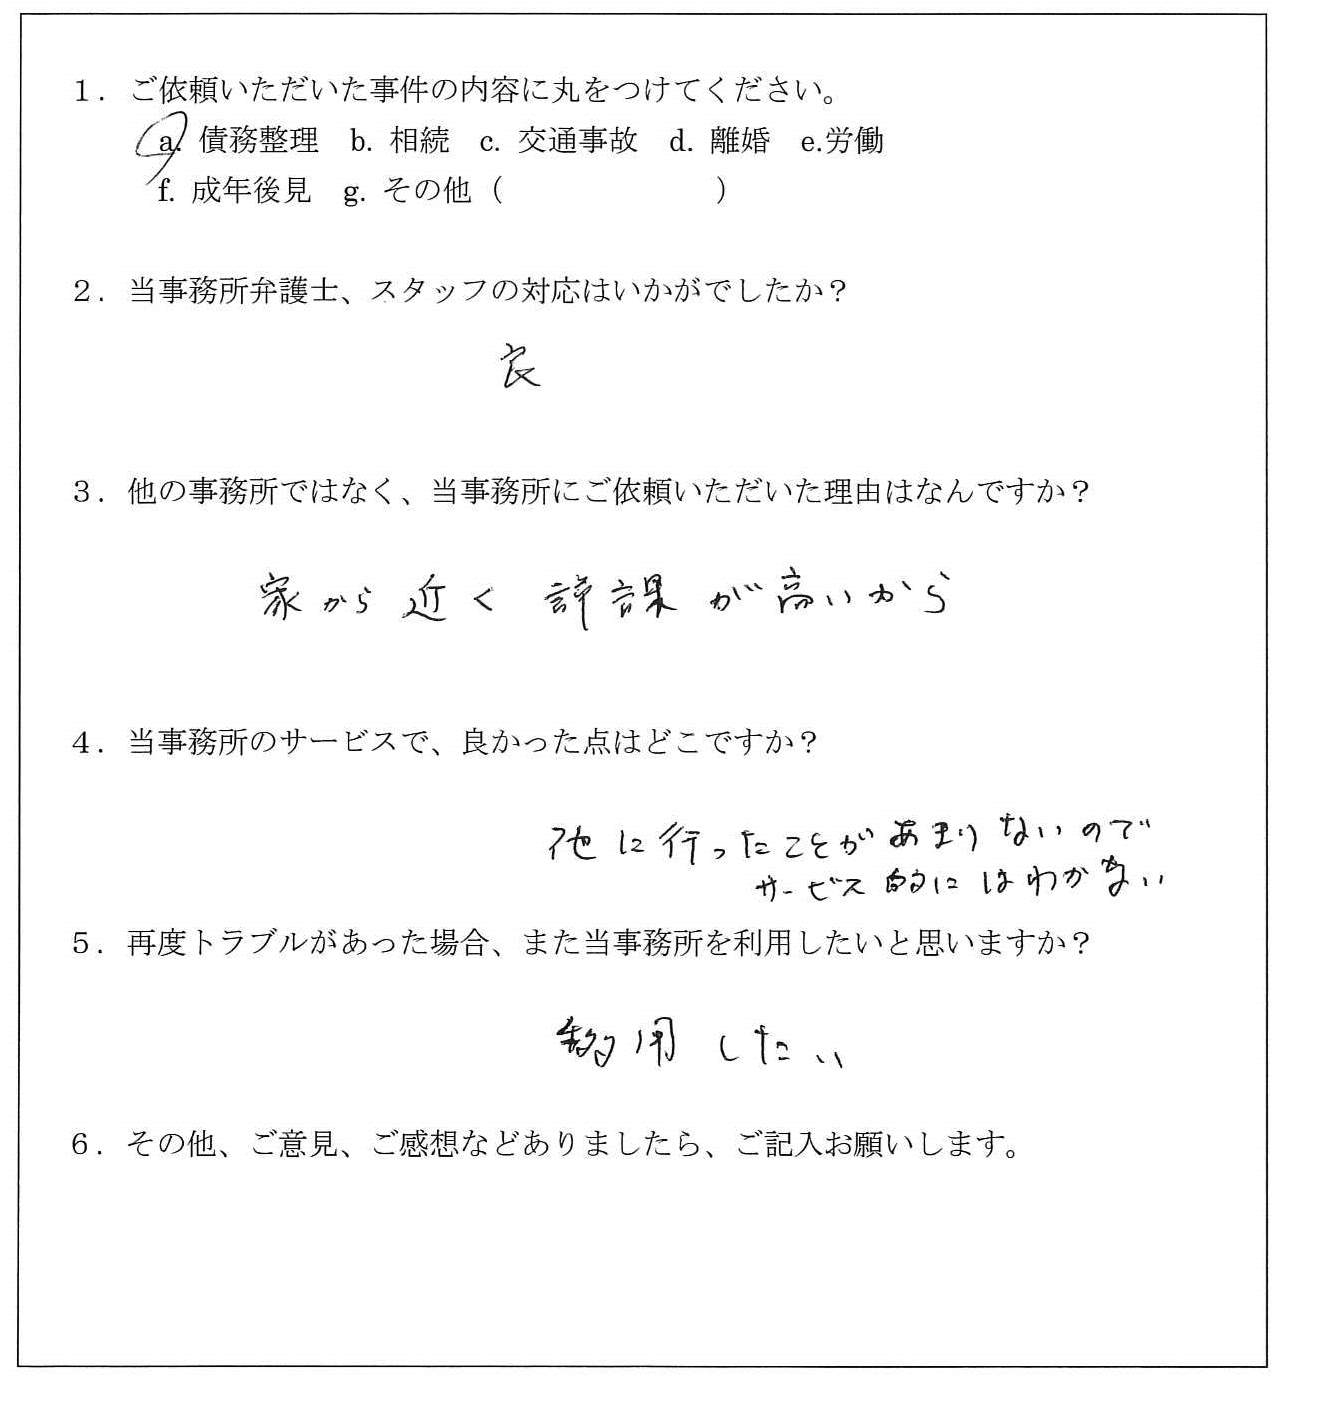 １．ご依頼いただいた事件の内容に丸をつけてください。
a. 債務整理　b. 相続　c. 交通事故　d. 離婚　e.労働
f. 成年後見　g. その他（　　　　　　　）
２．当事務所弁護士、スタッフの対応はいかがでしたか？
良
３．他の事務所ではなく、当事務所にご依頼いただいた理由はなんですか？
家から近く 評課が高いから
４．当事務所のサービスで、良かった点はどこですか？
他に行ったことがあまりないので
サービス的にはわかない
５．再度トラブルがあった場合、また当事務所を利用したいと思いますか？
用したい
６．その他、ご意見、ご感想などありましたら、ご記入お願いします。